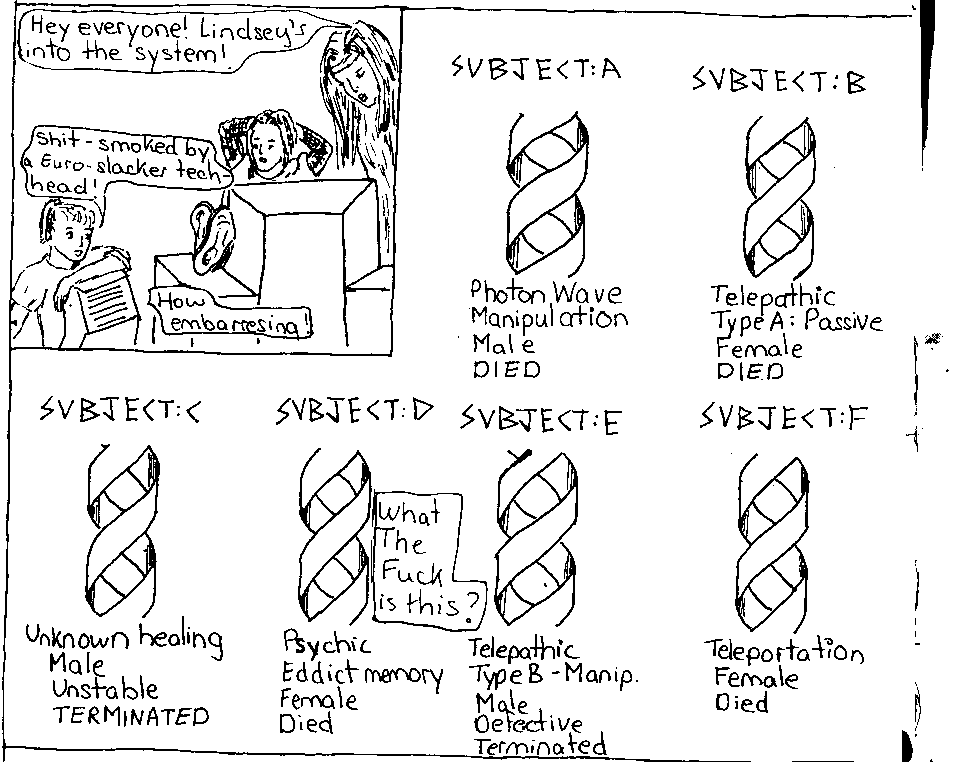 Hey everyone! Lindsey's
into the system!
Shit-smoked by
a Euro-slacker tech-
head!
How
embarresing!
SUBJECT:A
Photon Wave
Manipulation
Male
DIED
SUBJECT:B
Telepathic
Type A: Passive
Female
DIED
SUBJECT:C
Unknown healing
Male
Unstable
TERMINATED
SUBJECT:D
Psychic
Eddict memory
Female
Died
What
The
Fuck
is this?
SUBJECT:E
Telepathic
Type B-Manip.
Male
Defective
Terminated
SUBJECT:F
Teleportation
Female
Died